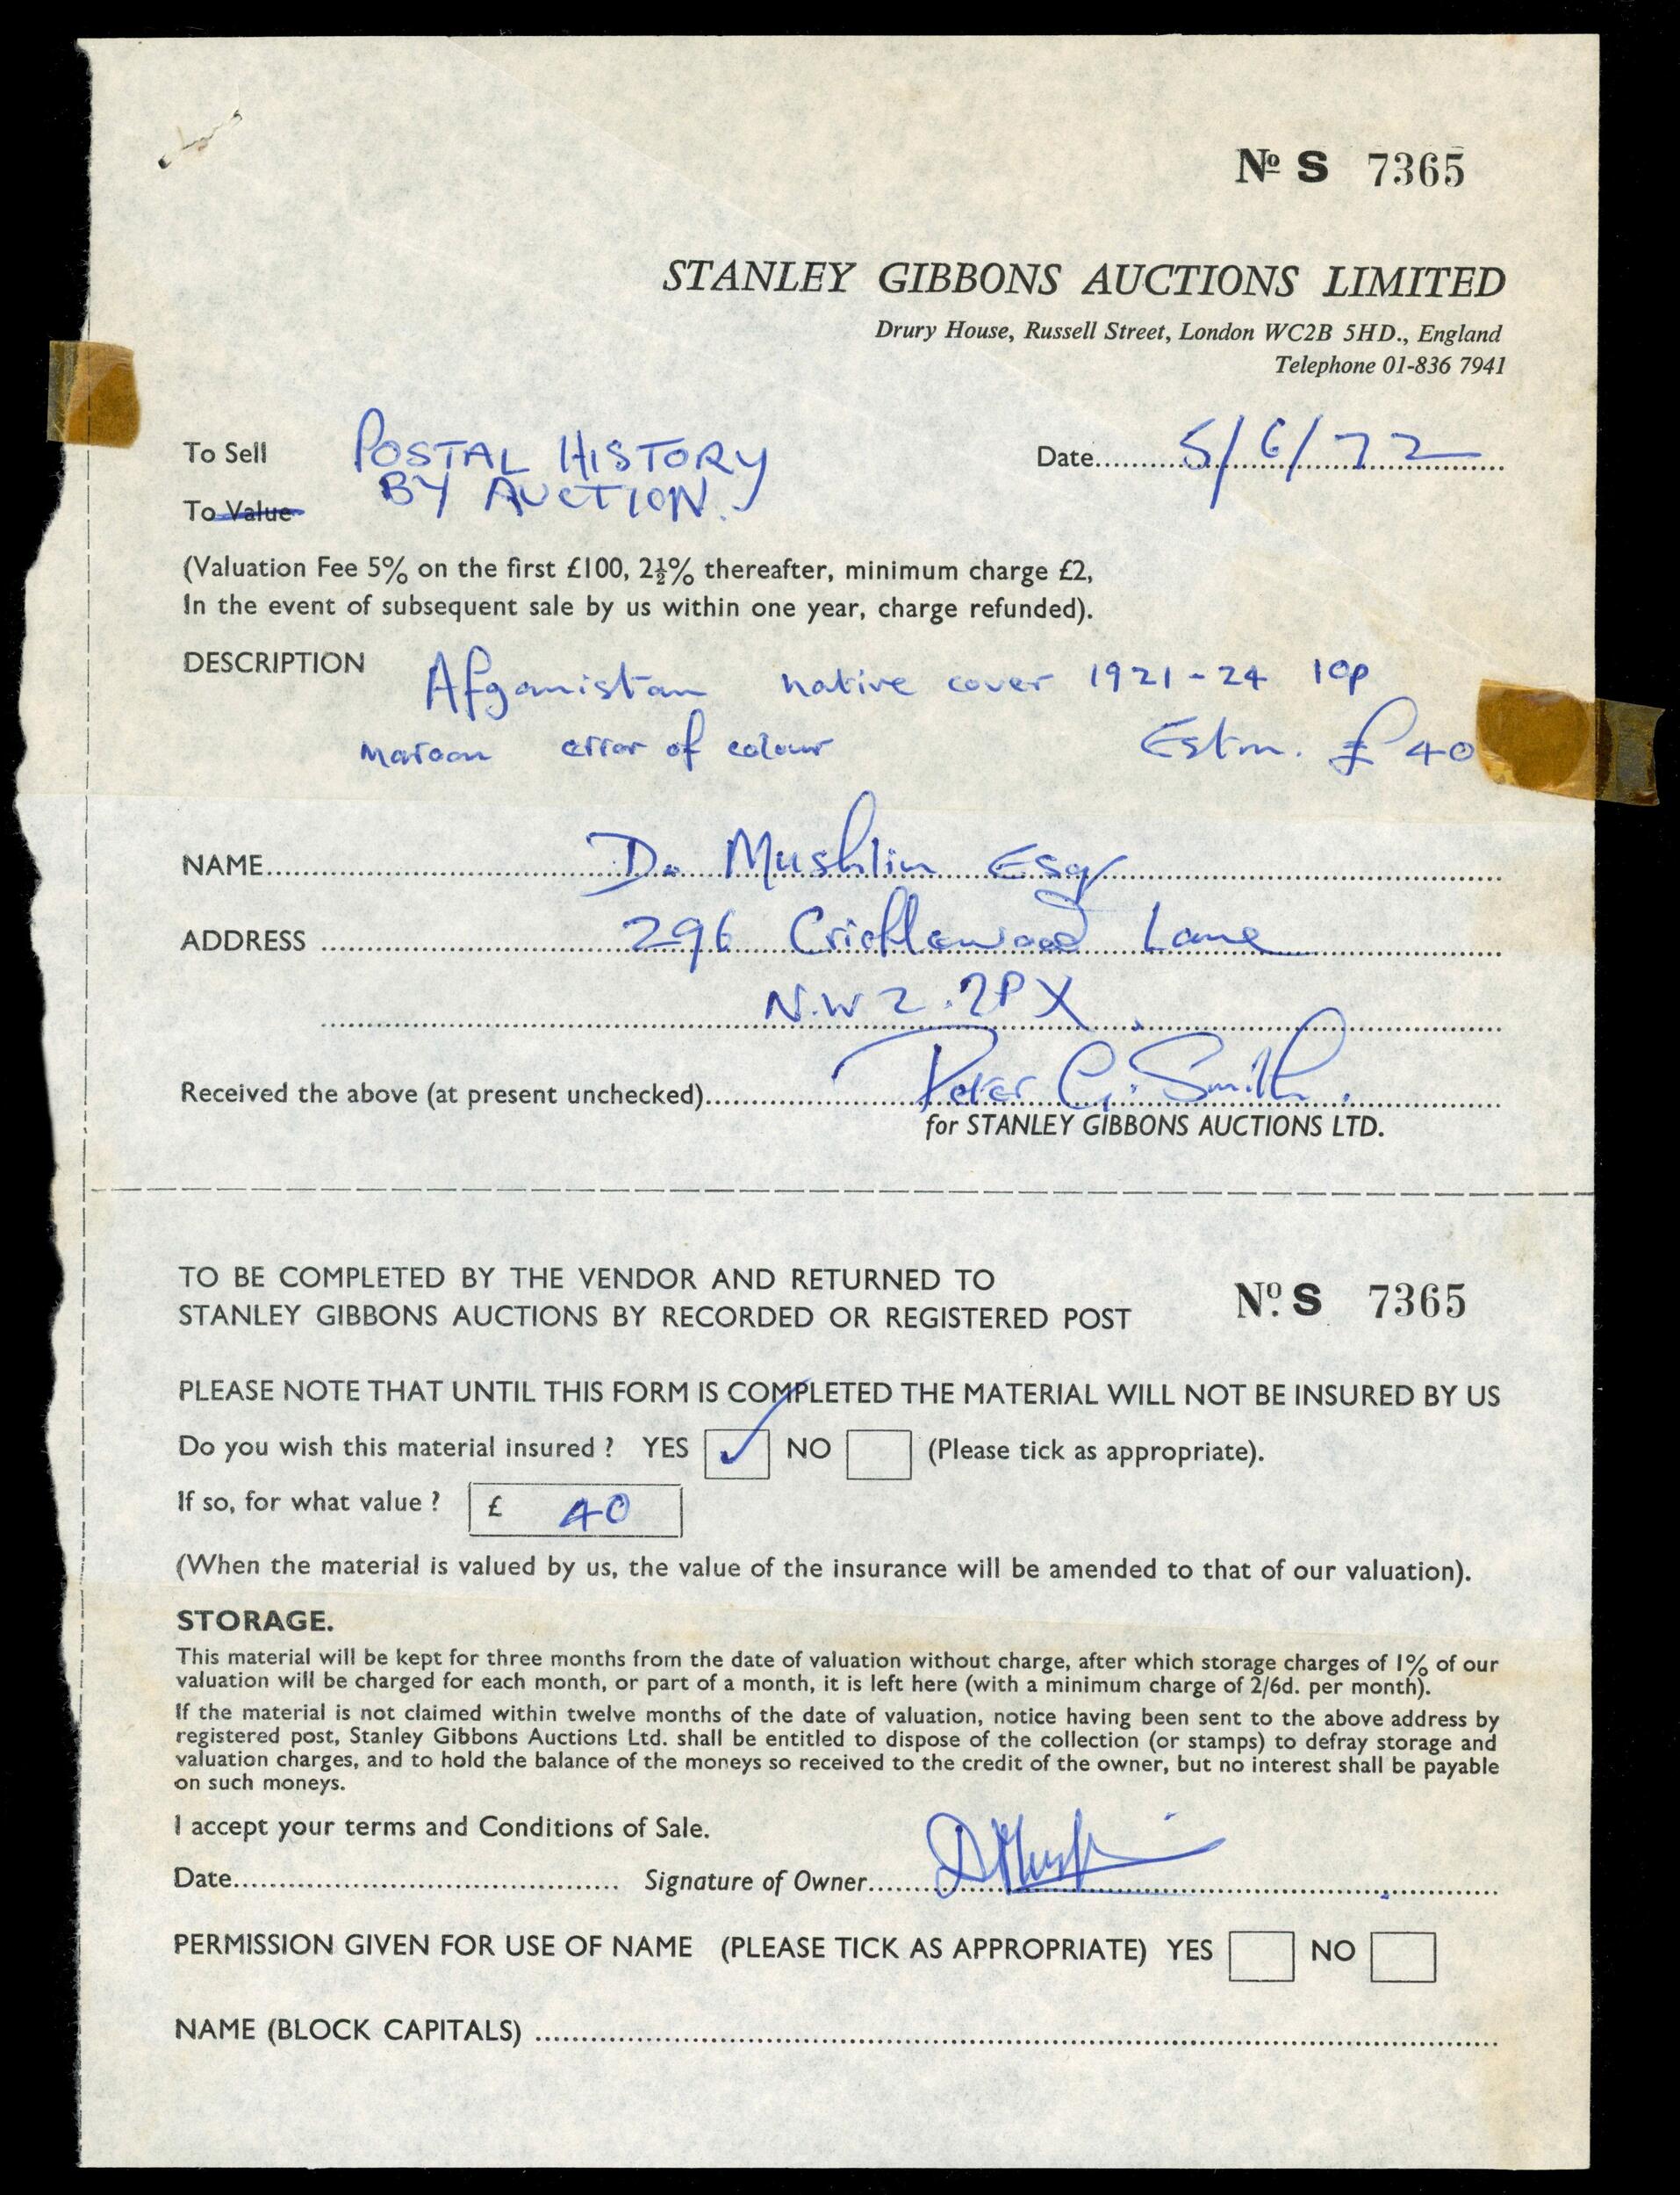 Nº S 7365
STANLEY GIBBONS AUCTIONS LIMITED
Drury House, Russell Street, London WC2B 5HD., England
Telephone 01-836 7941
To Sell POSTAL HISTORY Date 5/6/72
BY AUCTION.
To Value
(Valuation Fee 5% on the first £100, 2½% thereafter, minimum charge £2,
In the event of subsequent sale by us within one year, charge refunded).
DESCRIPTION Afganistan native cover 1921-24 10p
maroon error of colour Estm. £40
NAME D. Mushlin Esq
ADDRESS 296 Cricklewood Lane
N.W2.2PX
Received the above (at present unchecked) Peter G. Smith.
for STANLEY GIBBONS AUCTIONS LTD.
TO BE COMPLETED BY THE VENDOR AND RETURNED TO
STANLEY GIBBONS AUCTIONS BY RECORDED OR REGISTERED POST
Nº. S 7365
PLEASE NOTE THAT UNTIL THIS FORM IS COMPLETED THE MATERIAL WILL NOT BE INSURED BY US
Do you wish this material insured ? YES ✓ NO (Please tick as appropriate).
If so, for what value ? £ 40
(When the material is valued by us, the value of the insurance will be amended to that of our valuation).
STORAGE.
This material will be kept for three months from the date of valuation without charge, after which storage charges of 1% of our
valuation will be charged for each month, or part of a month, it is left here (with a minimum charge of 2/6d. per month).
If the material is not claimed within twelve months of the date of valuation, notice having been sent to the above address by
registered post, Stanley Gibbons Auctions Ltd. shall be entitled to dispose of the collection (or stamps) to defray storage and
valuation charges, and to hold the balance of the moneys so received to the credit of the owner, but no interest shall be payable
on such moneys.
I accept your terms and Conditions of Sale.
Date Signature of Owner DMushlin
PERMISSION GIVEN FOR USE OF NAME (PLEASE TICK AS APPROPRIATE) YES NO
NAME (BLOCK CAPITALS)